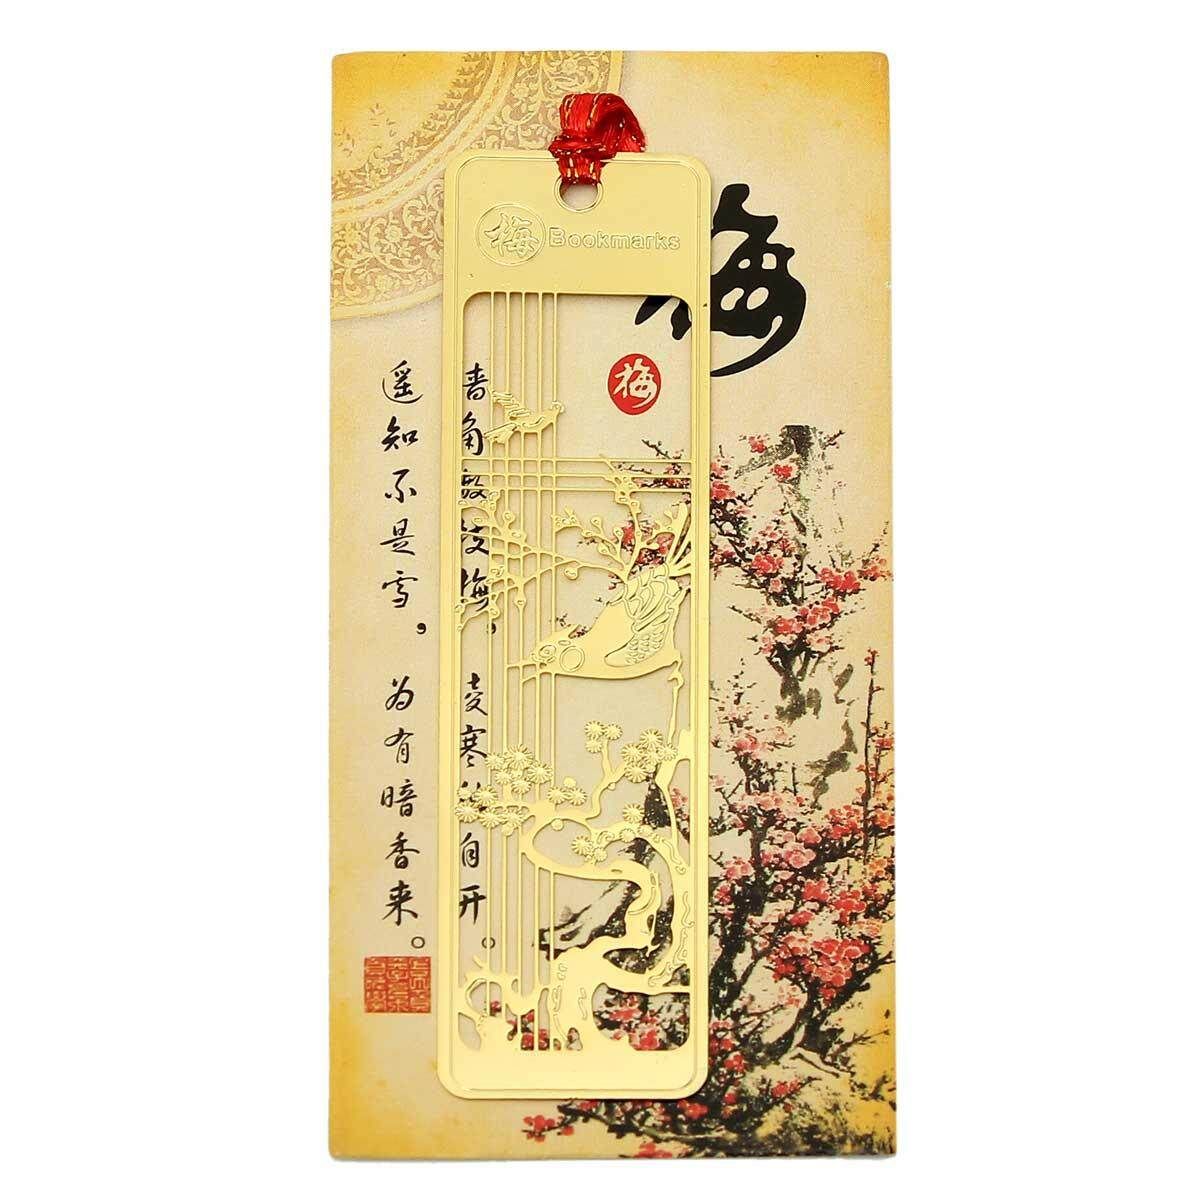 梅 Bookmarks
梅
梅
墙角数枝梅，凌寒独自开。
遥知不是雪，为有暗香来。